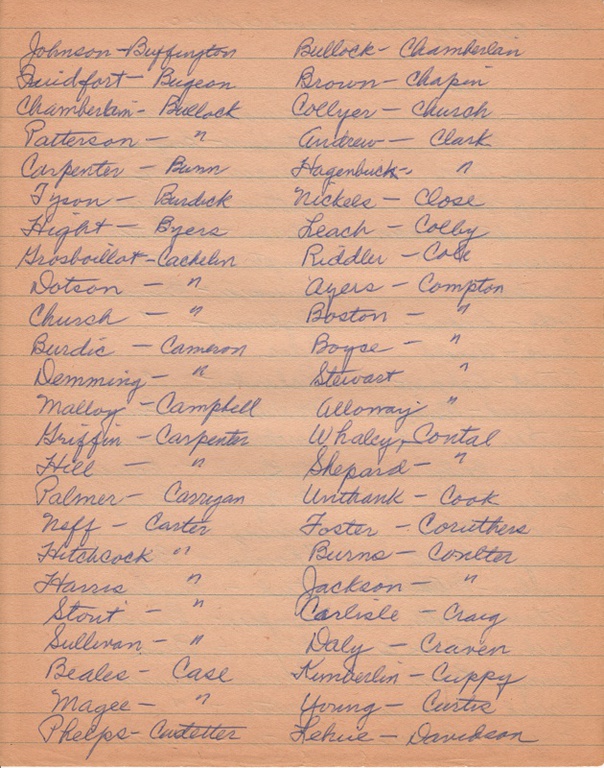 Johnson - Buffington
Guidfort - Bugeon
Chamberlain - Bullock
Patterson - "
Carpenter - Bunn
Tyson - Burdick
Hight - Byers
Grosboillot - Cachelin
Dotson - "
Church - "
Burdic - Cameron
Demming - "
Malloy - Campbell
Griffin - Carpenter
Hill - "
Palmer - Carrigan
Neff - Carter
Hitchcock "
Harris "
Stout - "
Sullivan - "
Beales - Case
Magee - "
Phelps -
Bullock - Chamberlain
Brown - Chapin
Collyer - Church
Andrew - Clark
Hagenbuck - "
Nickels - Close
Leach - Colby
Riddler - Cole
Ayers - Compton
Boston - "
Boyse - "
Stewart "
Alloway "
Whaley - Contal
Shepard - "
Unthank - Cook
Foster - Coruthers
Burns - Coulter
Jackson - "
Carlisle - Craig
Daly - Craven
Kimberlin - Cuppy
Young - Curtis
Lehue - Davidson